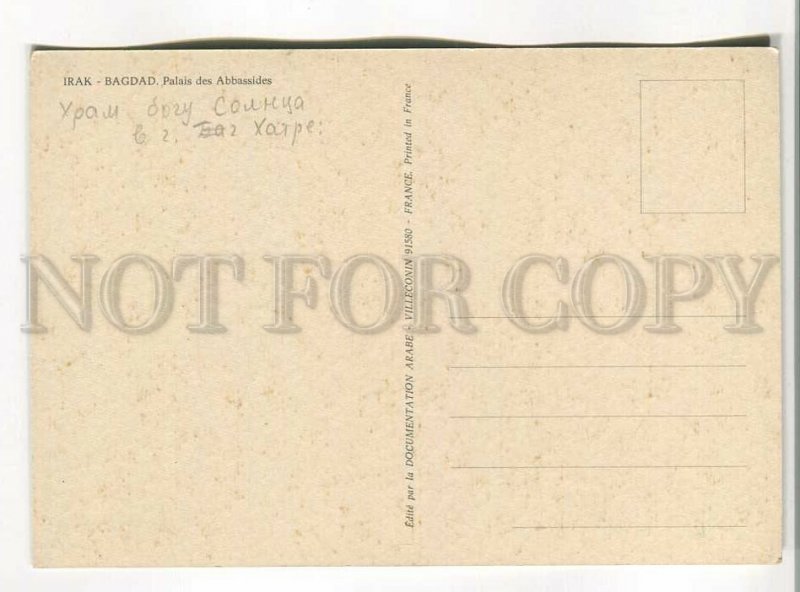 IRAK - BAGDAD. Palais des Abbassides
Храм богу Солнца
в г. Хатре.
Édité par la DOCUMENTATION ARABE - VILLECONIN 91580 - FRANCE. Printed in France
NOT FOR COPY